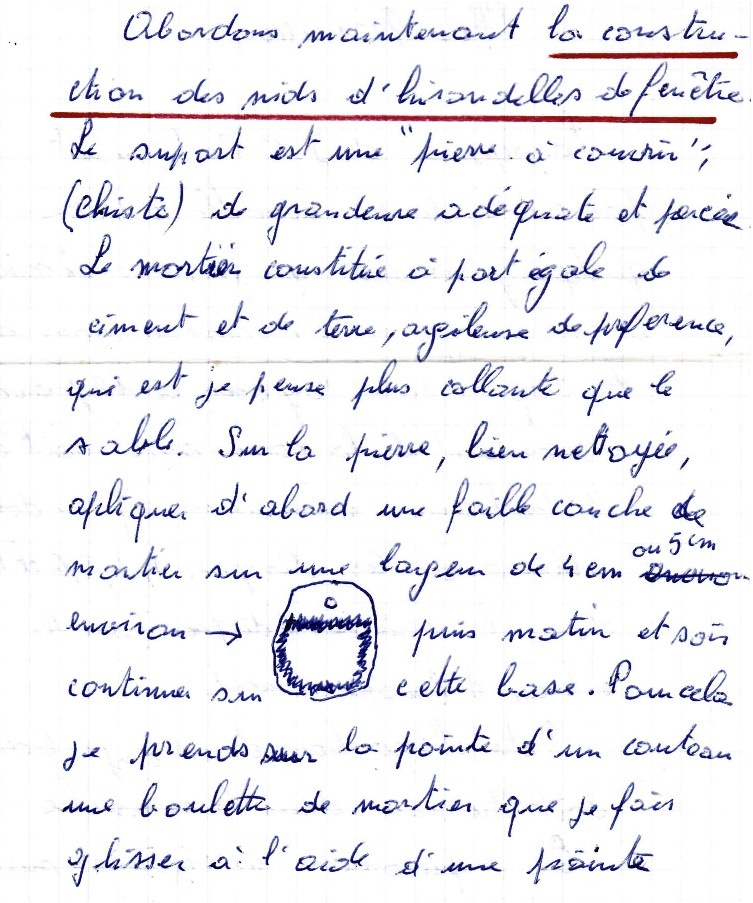 Abordons maintenant la constru-
ction des nids d'hirondelles de fenêtre.
Le suport est une "pierre à couvrir",
(Chiste) de grandeure adéquate et percée
Le mortier constituée à part égale de
ciment et de terre, argileuse de préference,
qui est je pense plus collante que le
sable. Sur la pierre, bien nettoyée,
apliquer d'abord une faible couche de
mortier sur une largeur de 4 cm ou 5 cm
environ → puis matin et soir
continuer sur cette base. Pour cela
je prends sur la pointe d'un couteau
une boulette de mortier que je fais
glisser à l'aide d'une pointe